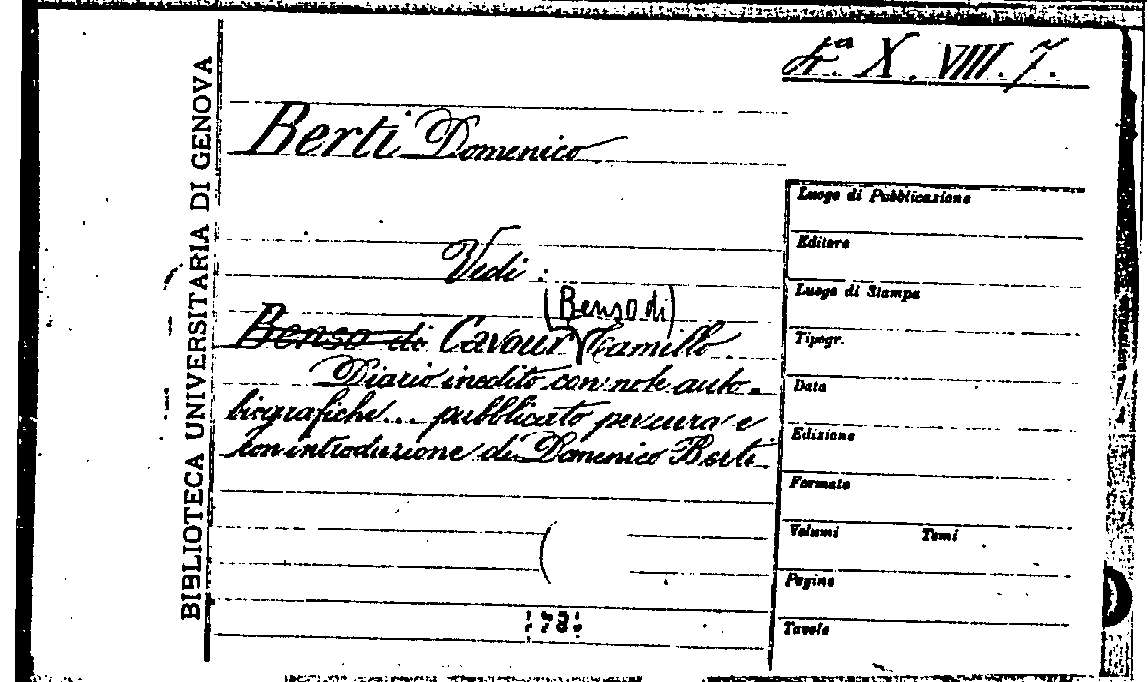 Sᵃ X. VIII. 7.
BIBLIOTECA UNIVERSITARIA DI GENOVA
Berti Domenico
Vedi :
(Benso di)
Benso di Cavour Camillo
Diario inedito con note auto-
biografiche... pubblicato per cura e
con introduzione di Domenico Berti
Luogo di Pubblicazione
Editore
Luogo di Stampa
Tipogr.
Data
Edizione
Formato
Volumi Tomi
Pagine
Tavole